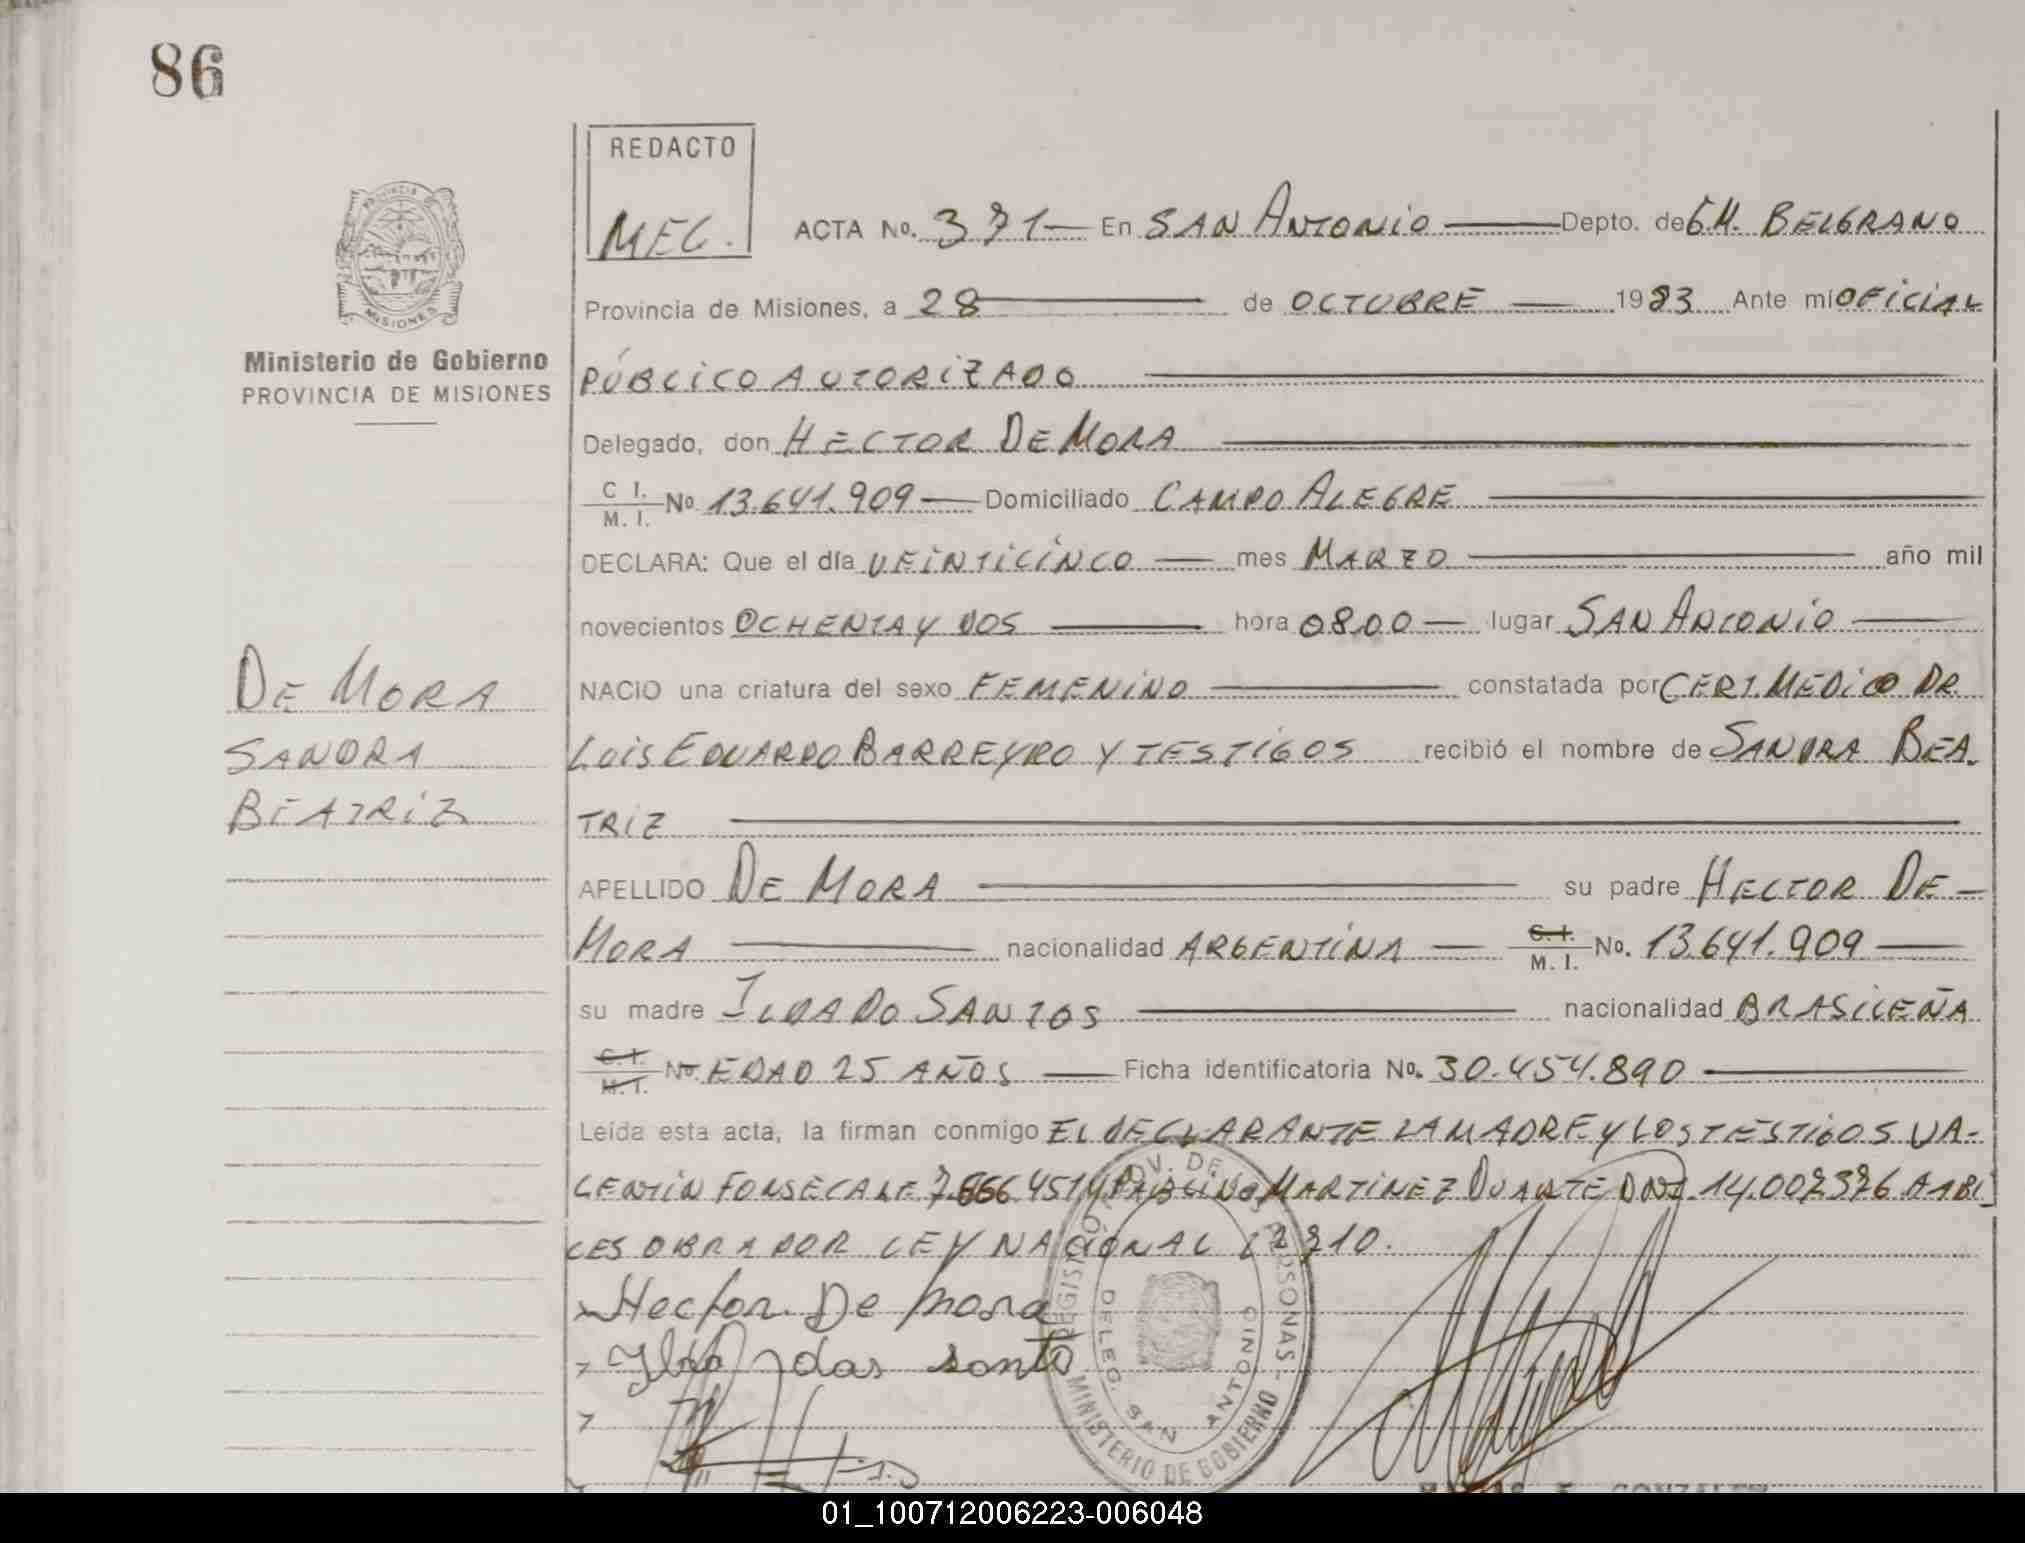 86
REDACTO
MEC.
ACTA No. 371 En SAN ANTONIO Depto. de G.M. BELGRANO
PROVINCIA
MISIONES
Provincia de Misiones, a 28 de OCTUBRE 1983 Ante mí OFICIAL
Ministerio de Gobierno
PROVINCIA DE MISIONES
PÚBLICO AUTORIZADO
Delegado, don HECTOR DE MORA
C I. / M. I. No. 13.641.909 Domiciliado CAMPO ALEGRE
DECLARA: Que el día VEINTICINCO mes MARZO año mil
novecientos OCHENTA Y DOS hora 08.00 lugar SAN ANTONIO
DE MORA
SANDRA
BEATRIZ
NACIO una criatura del sexo FEMENINO constatada por CERT. MEDICO DR.
LUIS EDUARDO BARREYRO Y TESTIGOS recibió el nombre de SANDRA BEA-
TRIZ
APELLIDO DE MORA su padre HECTOR DE
MORA nacionalidad ARGENTINA C. I. / M. I. No. 13.641.909
su madre ILDA DO SANTOS nacionalidad BRASILEÑA
C. I. / M. I. No. EDAD 25 AÑOS Ficha identificatoria No. 30.454.890
Leída esta acta, la firman conmigo EL DECLARANTE LA MADRE Y LOS TESTIGOS VA-
LENTIN FONSECA LE 7.666.451 Y PAULINO MARTINEZ DUARTE DNI. 14.007376 HABI
LES OBRA POR LEY NACIONAL 22710.
Hector De Mora
Ilda das santo
REGISTRO PROV. DE LAS PERSONAS
DELEG. SAN ANTONIO
MINISTERIO DE GOBIERNO
01_100712006223-006048